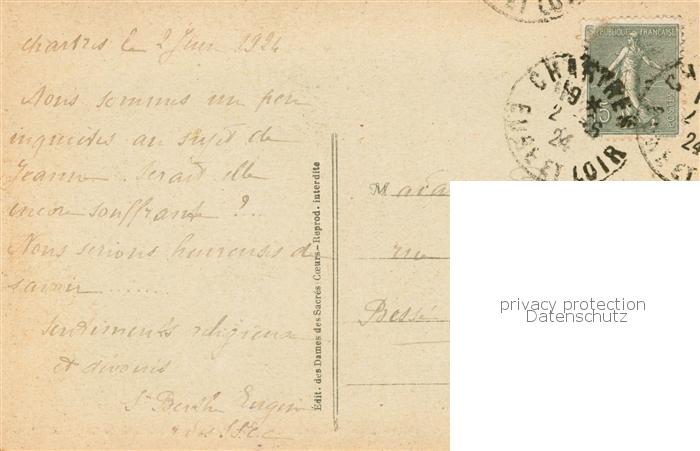 Chartres le 2 Juin 1924
Nous sommes un peu
inquiètes au sujet de
Jeanne. Serait elle
encore souffrante ?...
Nous serions heureuses de
savoir ........
sentiments religieux
et dévoués
Sr Berthe
Edit. des Dames des Sacrés-Cœurs-Reprod. interdite
M
rue
REPUBLIQUE FRANÇAISE
POSTES
15
CHARTRES
19
2
24
EURE ET LOIR
ET LOIR
2
24
privacy protection
Datenschutz